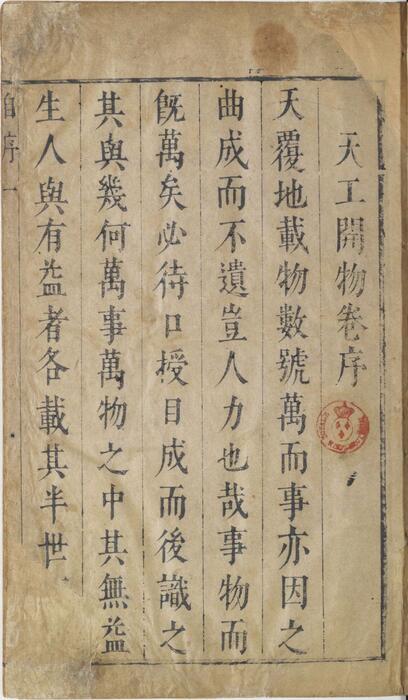 天工開物卷序
天覆地載物數號萬而事亦因之
曲成而不遺豈人力也哉事物而
旣萬矣必待口授目成而後識之
其與幾何萬事萬物之中其無益
生人與有益者各載其半世
自序一